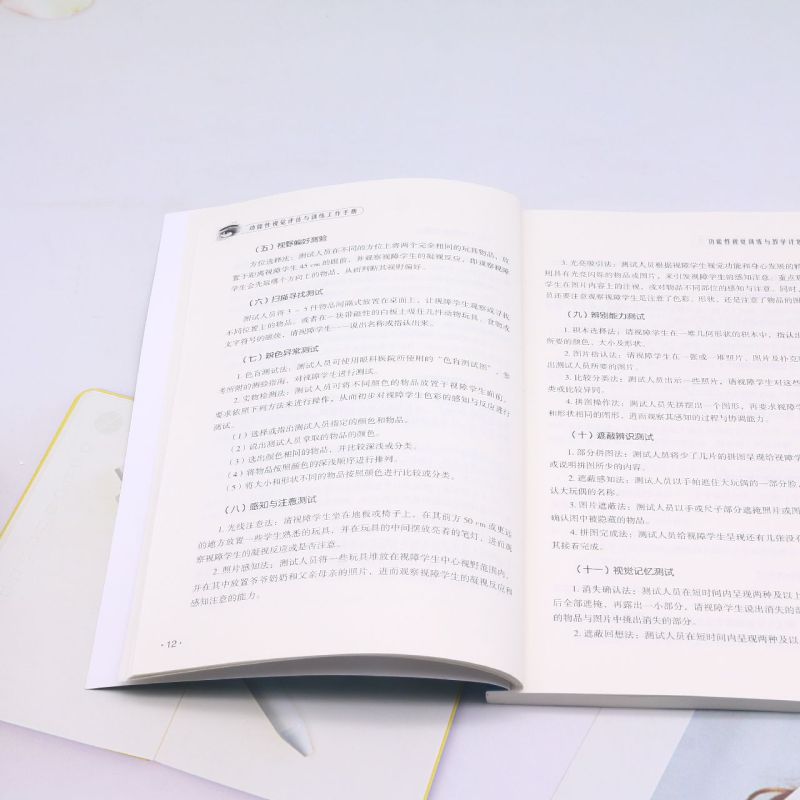 功能性视觉评估与训练工作手册
（五）视野偏好测验
方位选择法：测试人员在不同的方位上将两个完全相同的玩具物品，放
置于距离视障学生 45 cm 的眼前，并观察视障学生的凝视反应，即观察视障
学生会先取哪个方向上的物品，从而判断其视野偏好。
（六）扫描寻找测试
测试人员将 3 ~ 5 件物品间隔式放置在桌面上，让视障学生观察或寻找
不同位置上的物品，或者在一块带磁性的白板上吸住几件动物玩具、食物或
文字符号的磁块，请视障学生一一说出名称或指认出来。
（七）辨色异常测试
1. 色盲测试法：测试人员可使用眼科医院所使用的“色盲测试图”，参
考所附的测验指南，对视障学生进行测试。
2. 实物检测法：测试人员可将不同颜色的物品放置于视障学生面前，
要求依照下列方法来进行操作，从而初步对视障学生色彩的感知与反应进行
测试。
（1）选择或指出测试人员指定的颜色和物品。
（2）说出测试人员拿取的物品的颜色。
（3）选出颜色相同的物品，并比较深浅或分类。
（4）将物品按照颜色的深浅顺序进行排列。
（5）将大小和形状不同的物品按照颜色进行比较或分类。
（八）感知与注意测试
1. 光线注意法：请视障学生坐在地板或椅子上，在其前方 50 cm 或更远
的地方放置一些学生熟悉的玩具，并在玩具的中间摆放亮着的笔灯，进而观
察视障学生的凝视反应或是否注意。
2. 照片感知法：测试人员将一些玩具堆放在视障学生中心视野范围内，
并在其中放置爷爷奶奶和父亲母亲的照片，进而观察视障学生的凝视反应和
感知注意的能力。
·12·
功能性视觉训练与教学计
3. 光亮吸引法：测试人员根据视障学生视觉功能和身心发展的
利具有光亮闪烁的物品或图片，来引发视障学生的感知注意。重点
学生在图片内容上的注视，或对物品不同部位的感知与注意。同时，
员还要注意观察视障学生是注意了色彩、形状，还是注意了物品的
（九）辨别能力测试
1. 积木选择法：请视障学生在一堆几何形状的积木中，指认出
所要的颜色、大小及形状。
2. 图片指认法：请视障学生在一张或一堆照片、图片及扑克
出测试人员所要的图片。
3. 比较分类法：测试人员出示一些图片，请视障学生对这些
类或比较异同。
4. 拼图操作法：测试人员先拼摆出一个图形，再要求视障学
和形状相同的图形，进而观察其感知的过程与协调能力。
（十）遮蔽辨识测试
1. 部分拼图法：测试人员将少了几片的拼图呈现给视障学
或说明拼图所少的内容。
2. 遮蔽感知法：测试人员以手遮住大玩偶的一部分脸，
认大玩偶的名称。
3. 图片遮蔽法：测试人员将以手或尺子部分遮掩照片或图
确认图中被隐藏的物品。
4. 拼图完成法：测试人员给视障学生呈现还有几张没
其接着完成。
（十一）视觉记忆测试
1. 消失确认法：测试人员在短时间内呈现两种及以上
后全部遮掩，再露出一小部分，请视障学生说出消失的
的物品与图片中挑出消失的部分。
2. 遮蔽回想法：测试人员在短时间内呈现两种及以